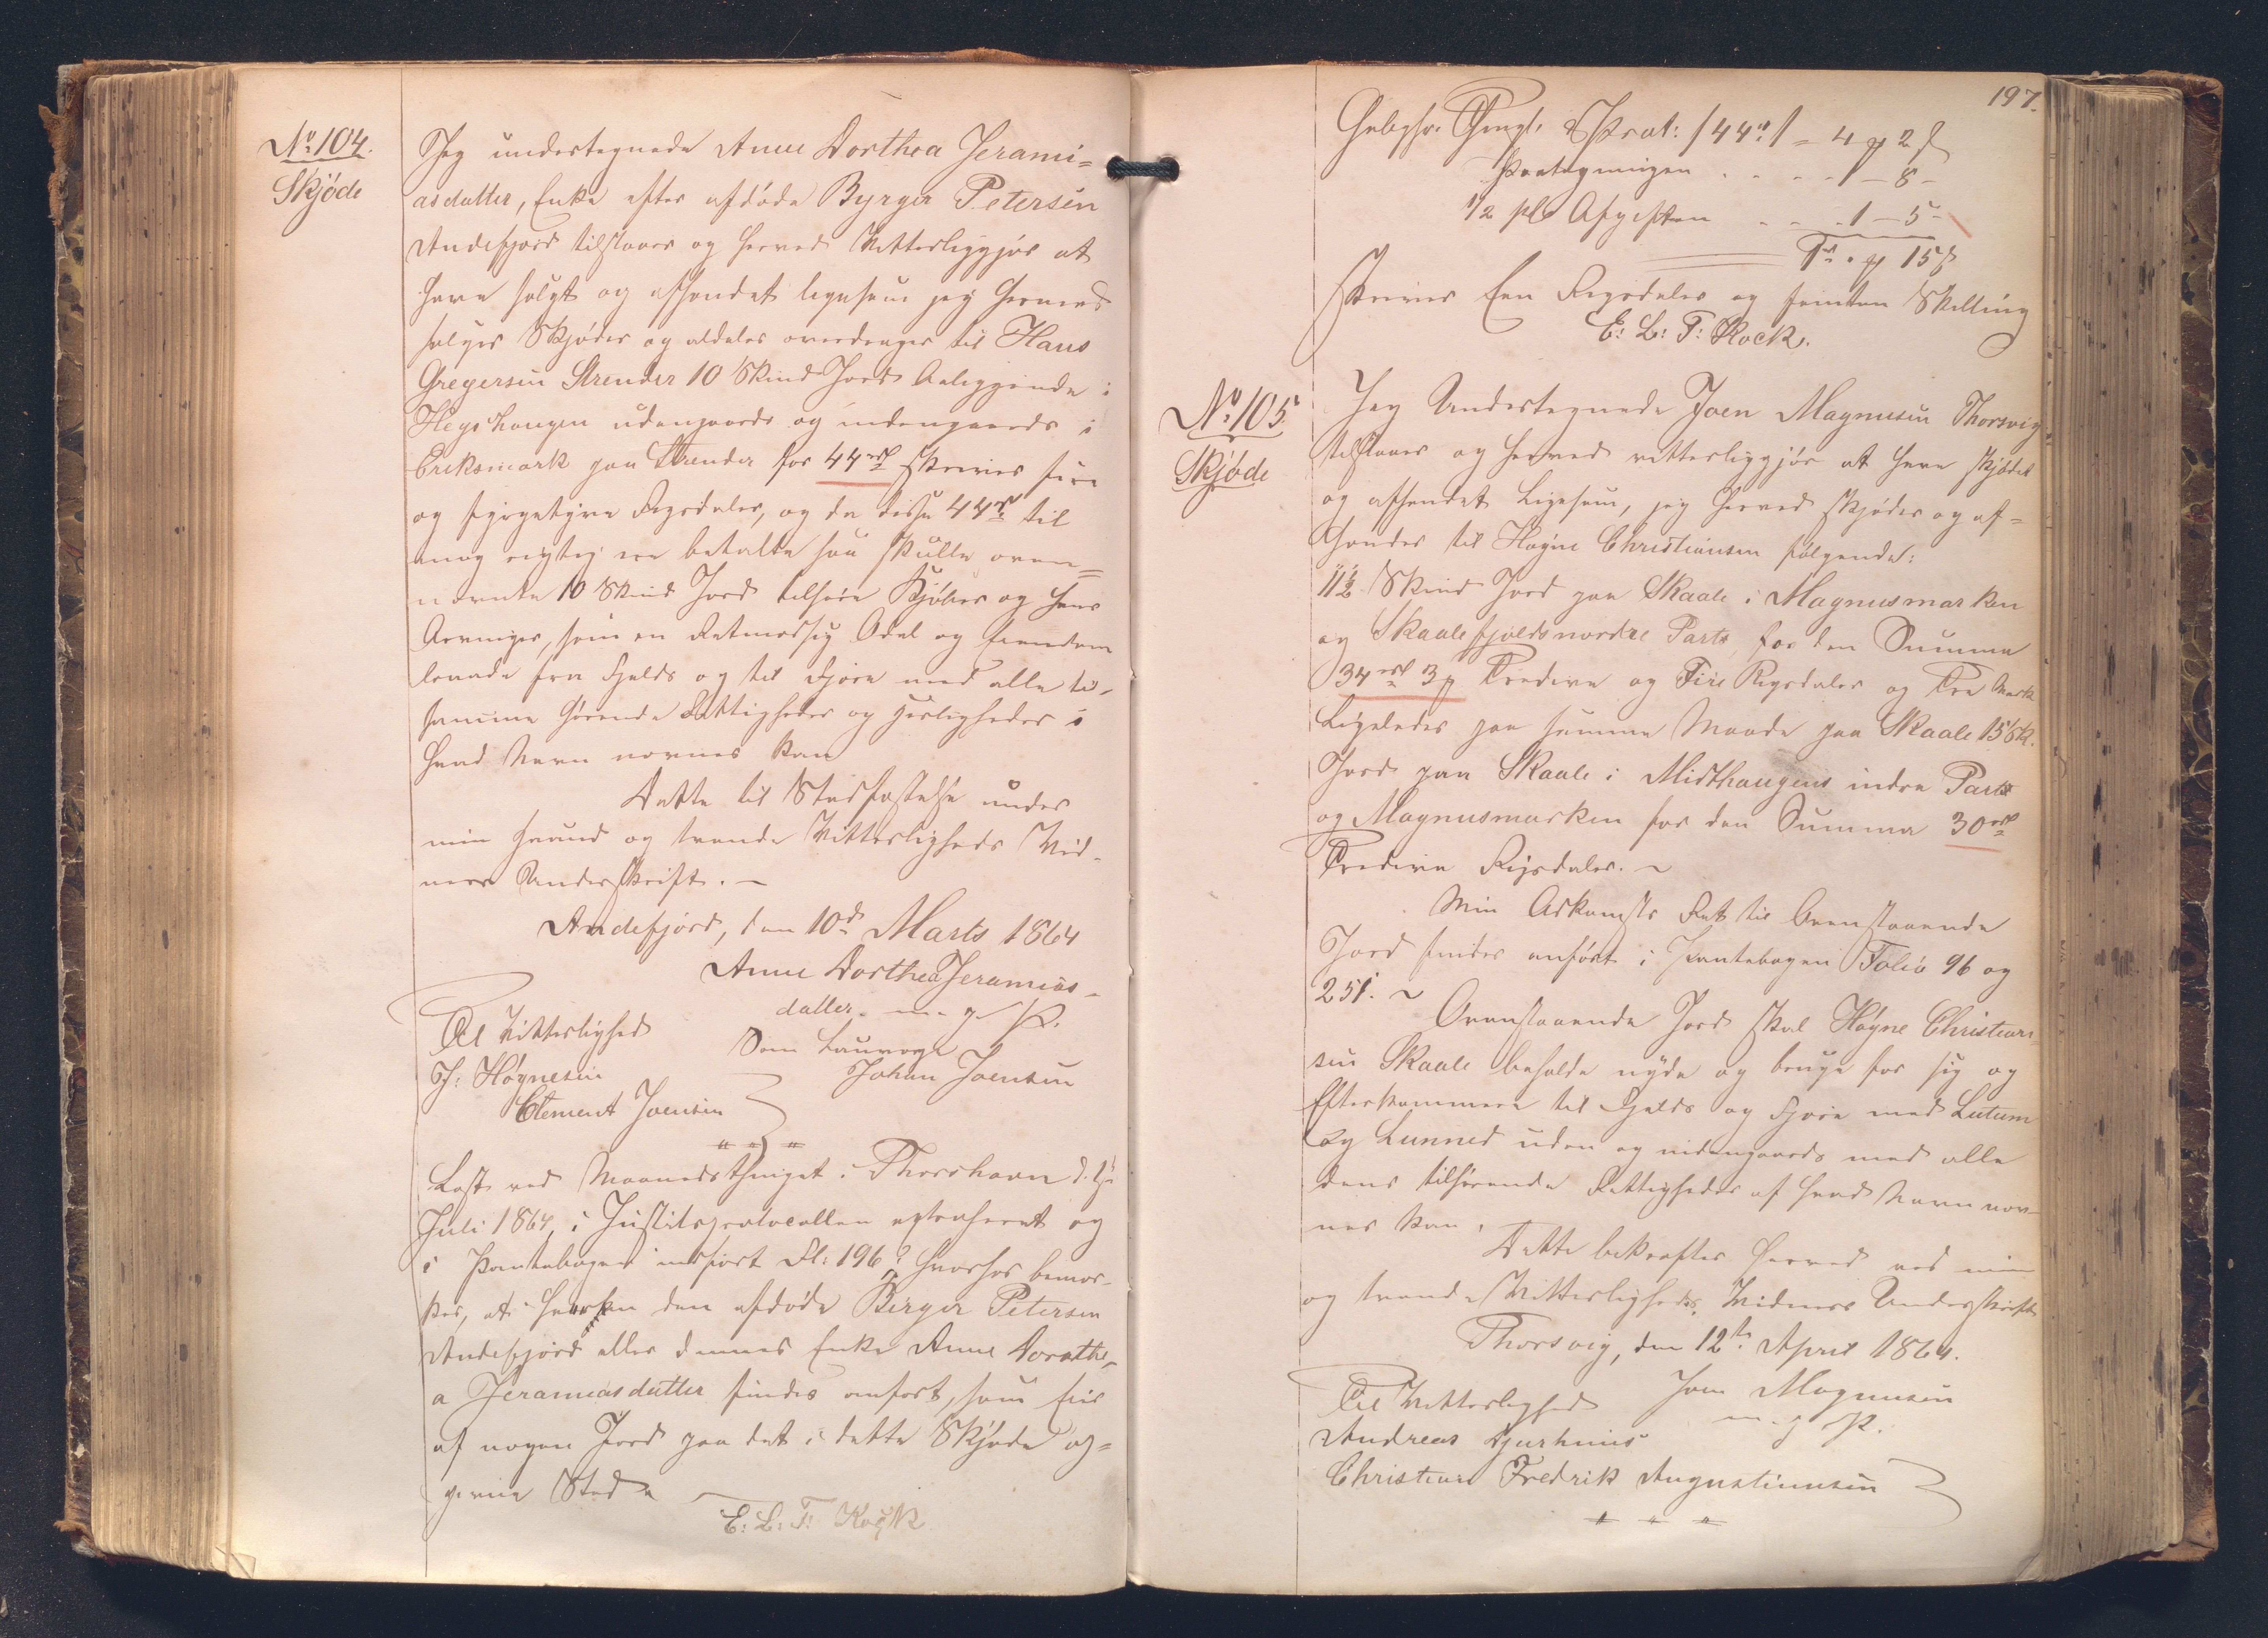 No 104.
Skjøde
Jeg undertegnede Anne Dorthea Jerami=
asdatter, Enke efter afdøde Byrger Petersen
Andefjord tilstaaer og herved Vitterliggjør at
have solgt og afhændet ligesom jeg herved
sælger Skjøder og aldeles overdrager til Hans
Gregersen Strender 10 Skind Jord beliggende i
Heyshaugen udengaards og indengaards i
Eriksmark paa Strender for 44 rd skriver fire
og fyrgetyve Rigsdaler, og da disse 44 rd til
mig rigtig ere betalte saa skulle oven=
nævnte 10 Skind Jord tilhøre Kjøber og hans
Arvinger, som en Retmæssig Odel og Eiendom
fra Fjelds og til Fjære med alle til
samme hørende Rettigheder og Herligheder i
hvad Navn nævnes kan
Dette til Stadfæstelse under
min Haand og tvende Vitterligheds Vid-
ners Underskrift. —
Andefjord, den 10d Marts 1864
Anne Dorthea Jeramias-
datter. m. g. P.
Til Vitterlighed
Som Laugværge
J: Høgnesen
Johan Joensen
Clement Joensen
Læst ved Maanedsthinget i Thorshavn d.
Juli 1864, i Justitsprotocollen extraheret og
i Pantebogen indført Fl: 196, hvorhos bemær-
kes, at hverken den afdøde Birger Petersen
Andefjord eller dennes Enke Anne Dorothe-
a Jeramiasdatter findes anført, som Eier
af nogen Jord paa det i dette Skjøde op=
givne Sted
E: L: T: Kock
197.
Gebyhr. Thingl. & Prot: /44rd/ = 4 m 2 s
Paategningen . . . . 1 — 8 —
1/2 pCt Afgiften . . . 1 — 5 —
1rd . m 15 s
skriver Een Rigsdaler og femten Skilling
E: L: T: Kock.
No 105.
Skjøde
Jeg Undertegnede Joen Magnusen Thorsvig
tilstaaer og herved vitterliggjør at have skjødet
og afhændet Ligesom, jeg herved skjøder og af=
hænder til Høgne Christiansen følgende:
11½ Skind Jord paa Skaale i Magnusmarken
og Skaalefjelds nordre Part, for den Summa
34 rd 3 m Tredive og Fire Rigsdaler og Tre Mark
Ligeledes paa samme Maade paa Skaale 15 Sk.
Jord paa Skaale i Midthaugens indre Part
og Magnusmarken for den Summa 30 rd
Tredive Rigsdaler. ~
Min Adkomsts Ret til Ovenstaaende
Jord findes anført i Pantebogen Folio 96 og
251. ~
Ovenstaaende Jord skal Høgne Christian
sen Skaale beholde nyde og bruge for sig og
Efterkommere til Fjelds og Fjære med Lutum
og Lunned uden og indengaards med alle
dens tilhørende Rettigheder af hvad Navn næv-
nes kan.
Dette bekræftes herved ved min
og tvende Vitterligheds Vidners Underskrift
Thorsvig, den 12te April 1864.
Til Vitterlighed
Joen Magnusen
m. g. P.
Andreas Djurhuus
Christian Fredrik Augustinusen